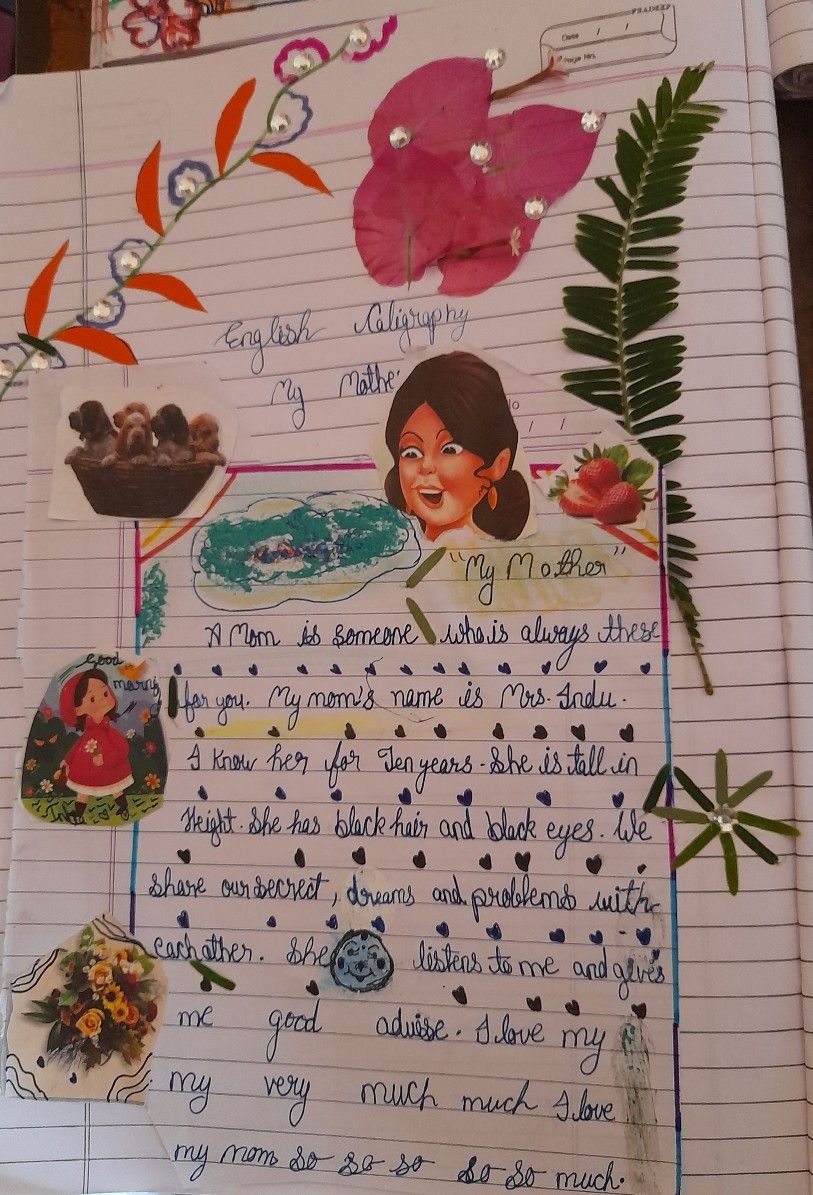 PRADEEP
Date / /
Page No.
English Caligraphy
My Mothe
/ /
"My Mother"
A Mom is someone who is always these
Good
marnig
for you. My mom's name is Mrs. Indu.
I know her for Ten years. She is tall in
Height. She has black hair and black eyes. We
share our secrect, dreams and problems with
eachather. She listens to me and gives
me good advise. I love my
my very much much I love
my mom so so so so so much.